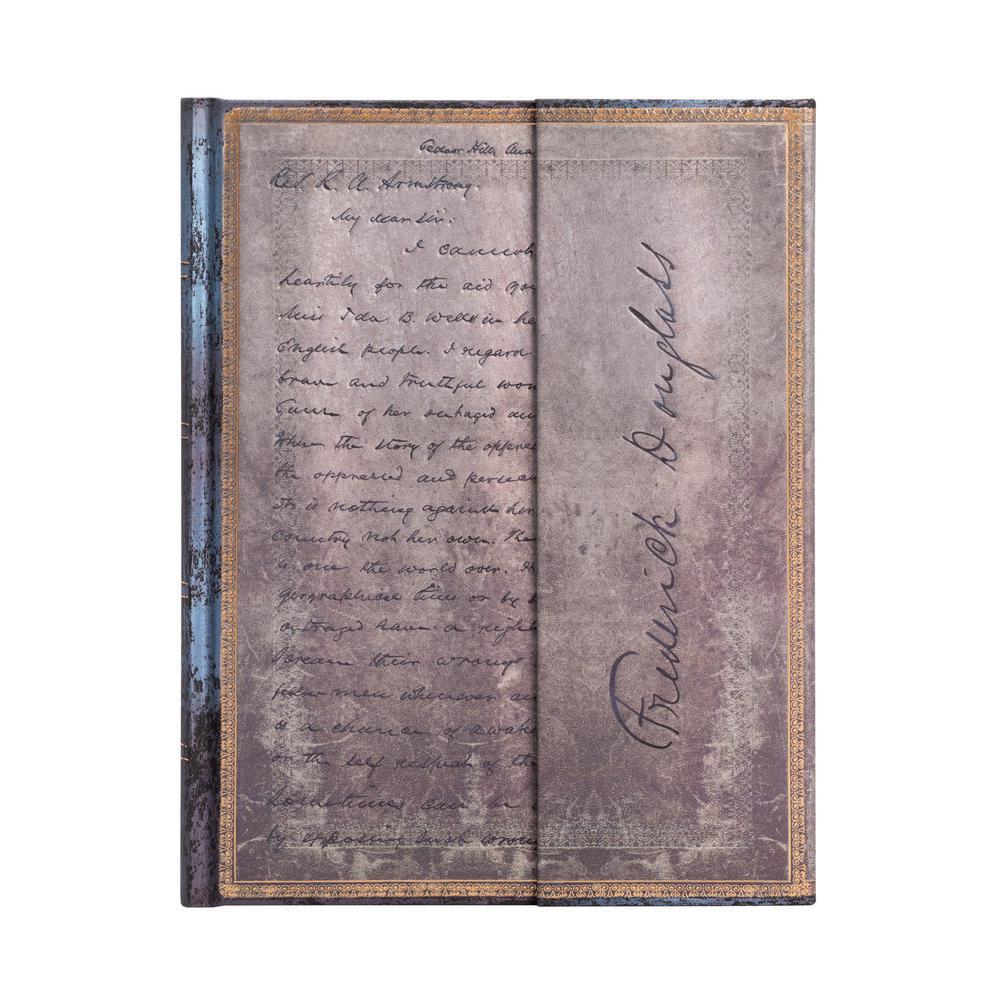 Cedar Hill, Ana
Rev. R. A. Armstrong.
My dear Sir:
I cannot
heartily for the aid
Miss Ida B. Wells in he
English people. I regard
brave and truthful wom
cause of her outraged an
When the story of the oppres
the oppressed and persecu
It is nothing against her
country not her own. The
is one the world over.
geographical lines or by
outraged have a right
scream their wrongs
fellow men wherever an
is a chance of awake
on the self respect of the
Sometimes can be
by exposing such wrong
Frederick Douglass